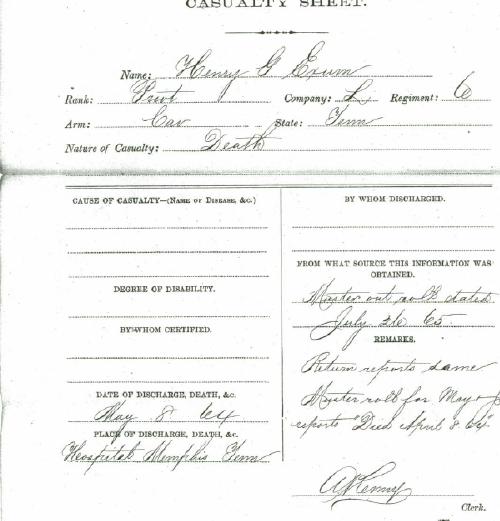 CASUALTY SHEET.
Name: Henry G Exum
Rank: Privt Company: L Regiment: 6
Arm: Cav State: Tenn
Nature of Casualty: Death
CAUSE OF CASUALTY—(NAME OF DISEASE, &C.)
DEGREE OF DISABILITY.
BY WHOM CERTIFIED.
DATE OF DISCHARGE, DEATH, &C.
May 8 64
PLACE OF DISCHARGE, DEATH, &C.
Hospital Memphis Tenn
BY WHOM DISCHARGED.
FROM WHAT SOURCE THIS INFORMATION WAS
OBTAINED.
Muster out roll dated
July 26 65
REMARKS.
Return reports same
Muster roll for May &
reports "Died April 8 64"
Clerk.